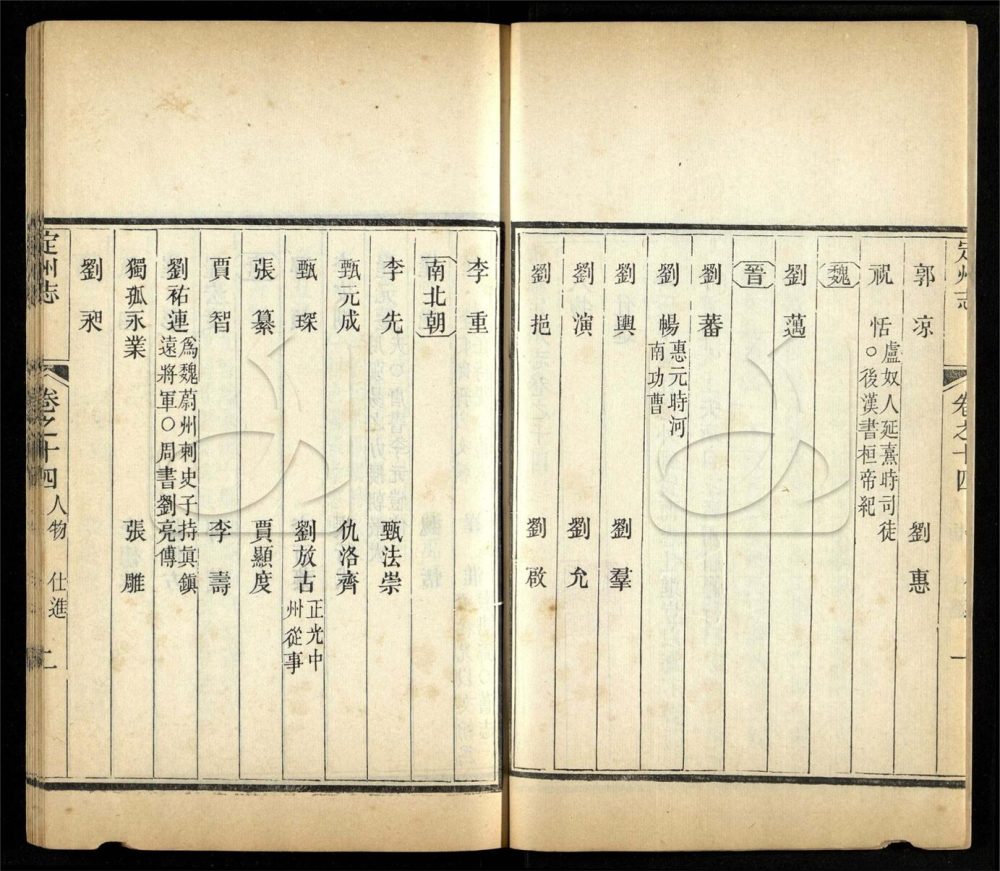 定州志 卷之十四
一
郭凉 劉惠
祝恬 盧奴人延熹時司徒
○後漢書桓帝紀
魏
劉邁
晉
劉蕃
劉暢 惠元時河
南功曹
劉輿 劉羣
劉演 劉允
劉挹 劉啟
李重
南北朝
李先 甄法崇
甄元成 仇洛齊
甄琛 劉放古 正光中
州從事
張纂 賈顯度
賈智 李壽
劉祐連 為魏蔚州刺史子持真鎮
遠將軍○周書劉亮傳
獨孤永業 張雕
劉昶
定州志 卷之十四 人物 仕進 二